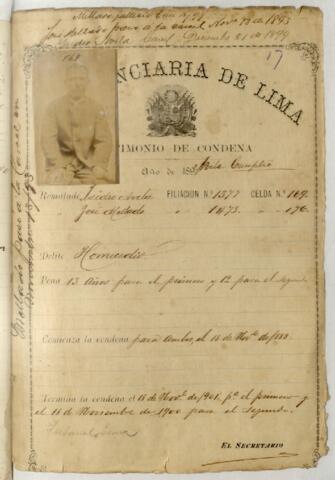 Mellado
José Mellado pasó a la carcel Novbre 13 de 1893
Isidro Avila Carcel Diciembre 21 de 1899
169
17
NCIARIA DE LIMA
TIMONIO DE CONDENA
Año de 189
Avila Cumplió
Rematado Isidro Avila FILIACIÓN N.º 1377 CELDA N.º 169.
José Mellado " " 1473 " 176.
Delito Homicidio
Pena 13 Años para el primero y 12 para el segundo
Comienza la condena para ambos, el 16 de Novbre de 188
Termina la condena el 16 de Novbre de 1901 pª el primero y
el 16 de Noviembre de 1900 para el segundo.
EL SECRETARIO
Mellado pasó a la Carcel en